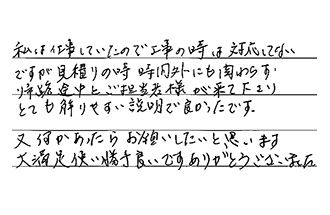 私は仕事していたので工事の時は対応してない
ですが見積りの時 時間外にも関わらず
帰路途中とご担当者様が来て下さり
とても解りやすい説明で良かったです。
又何かあったらお願いしたいと思います
大満足使い勝手良いですありがとうございました